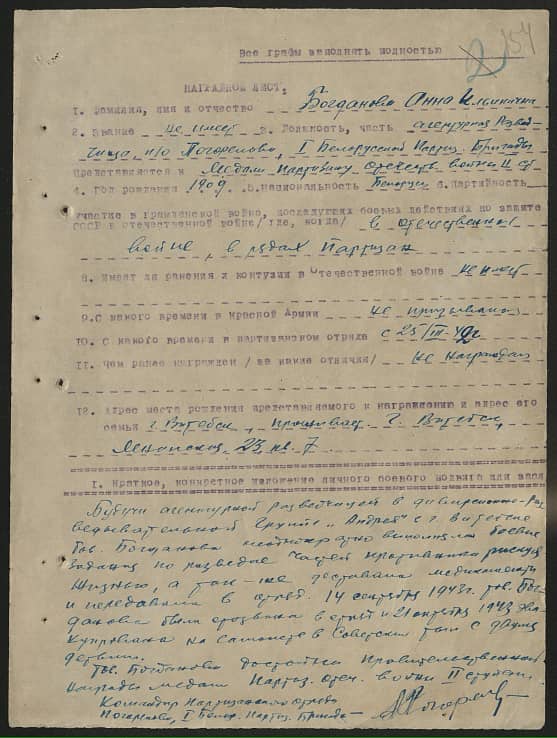 Все графы заполнять полностью
2 154
НАГРАДНОЙ ЛИСТ.
1. Фамилия, имя и отчество Богданова Анна Ильинична
2. Звание не имеет 3. Должность, часть агентурная Развед-
чица п/о Погорелова, I Белорусской Партиз. Бригады
Представляется к Медали Партизану Отечеств. войны II ст.
4. Год рождения 1909. 5. Национальность Белорус 6. Партийность
Участие в гражданской войне, последующих боевых действиях по защите
СССР и отечественной войне/ где, когда/ в отечественной
войне, в рядах Партизан
8. Имеет ли ранения и контузии в Отечественной войне не имеет
9. С какого времени в Красной Армии не призывалась
10. С какого времени в партизанском отряде с 25/III-42г
11. Чем ранее награжден / за какие отличия/ не награждал
12. Адрес места рождения представляемого к награждению и адрес его
семьи г. Витебск, прожив. г. Витебск,
Ленинская 23 кв. 7.
I. Краткое, конкретное изложение личного боевого подвига или засл
Будучи агентурной разведчицей в диверсионно-раз
ведывательной группе "Андрей" с г. Витебске
тов. Богданова неоднократно выполняла боевые
задания по разведке частей противника рискуя
жизнью, а так-же доставала медикаменты
и передавала в отряд. 14 сентября 1943г. тов. Бог-
данова была отозвана в отряд и 21 октября 1943
на самолете в Советский тыл с двумя
детьми.
Тов. Богданова достойна Правительственной
награды медали Партиз. Отеч. войны II степени.
Командир Партизанского отряда
Погорелова, I Белор. Партиз. Бригады —